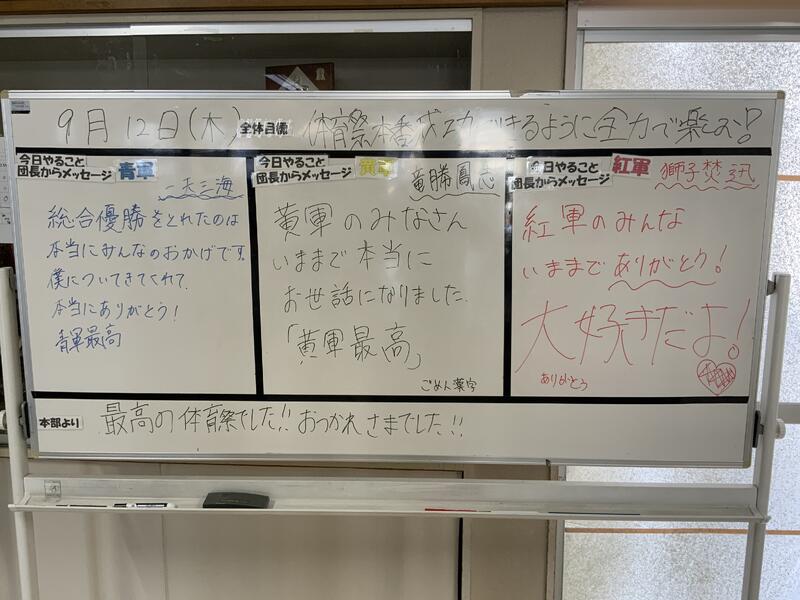 9月12日(木) 全体目標 体育祭本番成功できるように全力で楽しむ!
今日やること
団長からメッセージ
青軍
一天三海
総合優勝をとれたのは
本当にみんなのおかげです。
僕についてきてくれて、
本当にありがとう!
青軍最高
今日やること
団長からメッセージ
黄軍
竜勝鳳志
黄軍のみなさん
いままで本当に
お世話になりました.
「黄軍最高」
ごめん漢字
今日やること
団長からメッセージ
紅軍
獅子焚迅
紅軍のみんな
いままでありがとう!
大好きだよ!
ありがとう
本部より
最高の体育祭でした!! おつかれさまでした!!